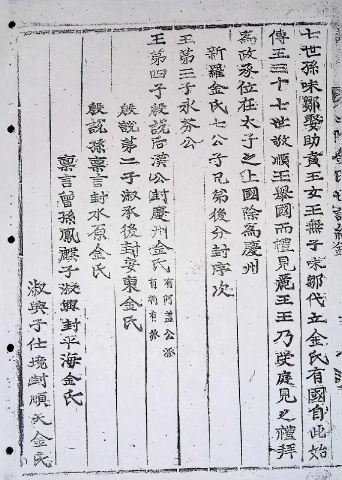 七世孫味鄒娶助賁王女王無子味鄒代立金氏有國自此始
傳王三十七世敬順王舉國而禮見麗王王乃受庭見之禮拜
為政承位在太子之上國除為慶州
新羅金氏七公子兄弟後分封序次
王第三子永芬公
王第四子殷說后漢公封慶州金氏
殷說第二子淑承後封安東金氏
殷說孫稟言封水原金氏
稟言曾孫鳳麒子淑興封平海金氏
淑興子仕境封順天金氏